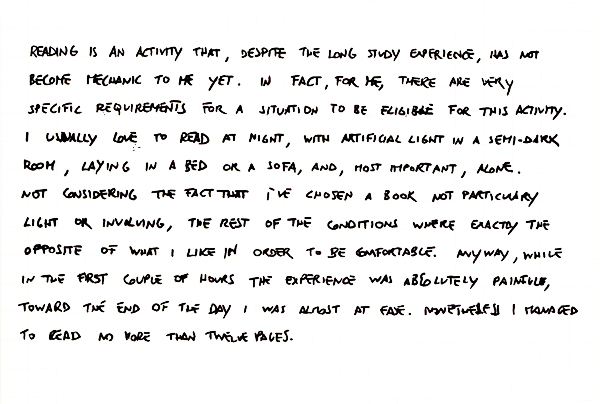 READING IS AN ACTIVITY THAT, DESPITE THE LONG STUDY EXPERIENCE, HAS NOT
BECOME MECHANIC TO ME YET. IN FACT, FOR ME, THERE ARE VERY
SPECIFIC REQUIREMENTS FOR A SITUATION TO BE ELIGIBLE FOR THIS ACTIVITY.
I USUALLY LOVE TO READ AT NIGHT, WITH ARTIFICIAL LIGHT IN A SEMI-DARK
ROOM, LAYING IN A BED OR A SOFA, AND, MOST IMPORTANT, ALONE.
NOT CONSIDERING THE FACT THAT I'VE CHOSEN A BOOK NOT PARTICULARY
LIGHT OR INVOLVING, THE REST OF THE CONDITIONS WHERE EXACTLY THE
OPPOSITE OF WHAT I LIKE IN ORDER TO BE COMFORTABLE. ANYWAY, WHILE
IN THE FIRST COUPLE OF HOURS THE EXPERIENCE WAS ABSOLUTELY PAINFUL,
TOWARD THE END OF THE DAY I WAS ALMOST AT EASE. NONETHELESS I MANAGED
TO READ NO MORE THAN TWELVE PAGES.